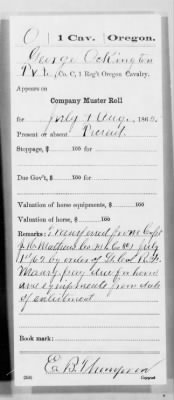 O | 1 Cav. | Oregon.
George Ockington
Pvt., Co. C, 1 Reg't Oregon Cavalry.
Appears on
Company Muster Roll
for July & Aug, 1862.
Present or absent Present
Stoppage, $ 100 for
Due Gov't, $ 100 for
Valuation of horse equipments, $ 100
Valuation of horse, $ 100
Remarks: Transferred from Capt
July
1st 62 by order of Lt Col R. F.
Maury pay due for horse
and equipments from date
of enrolment
Book mark:
E. B. Thompson
(358) Copyist.